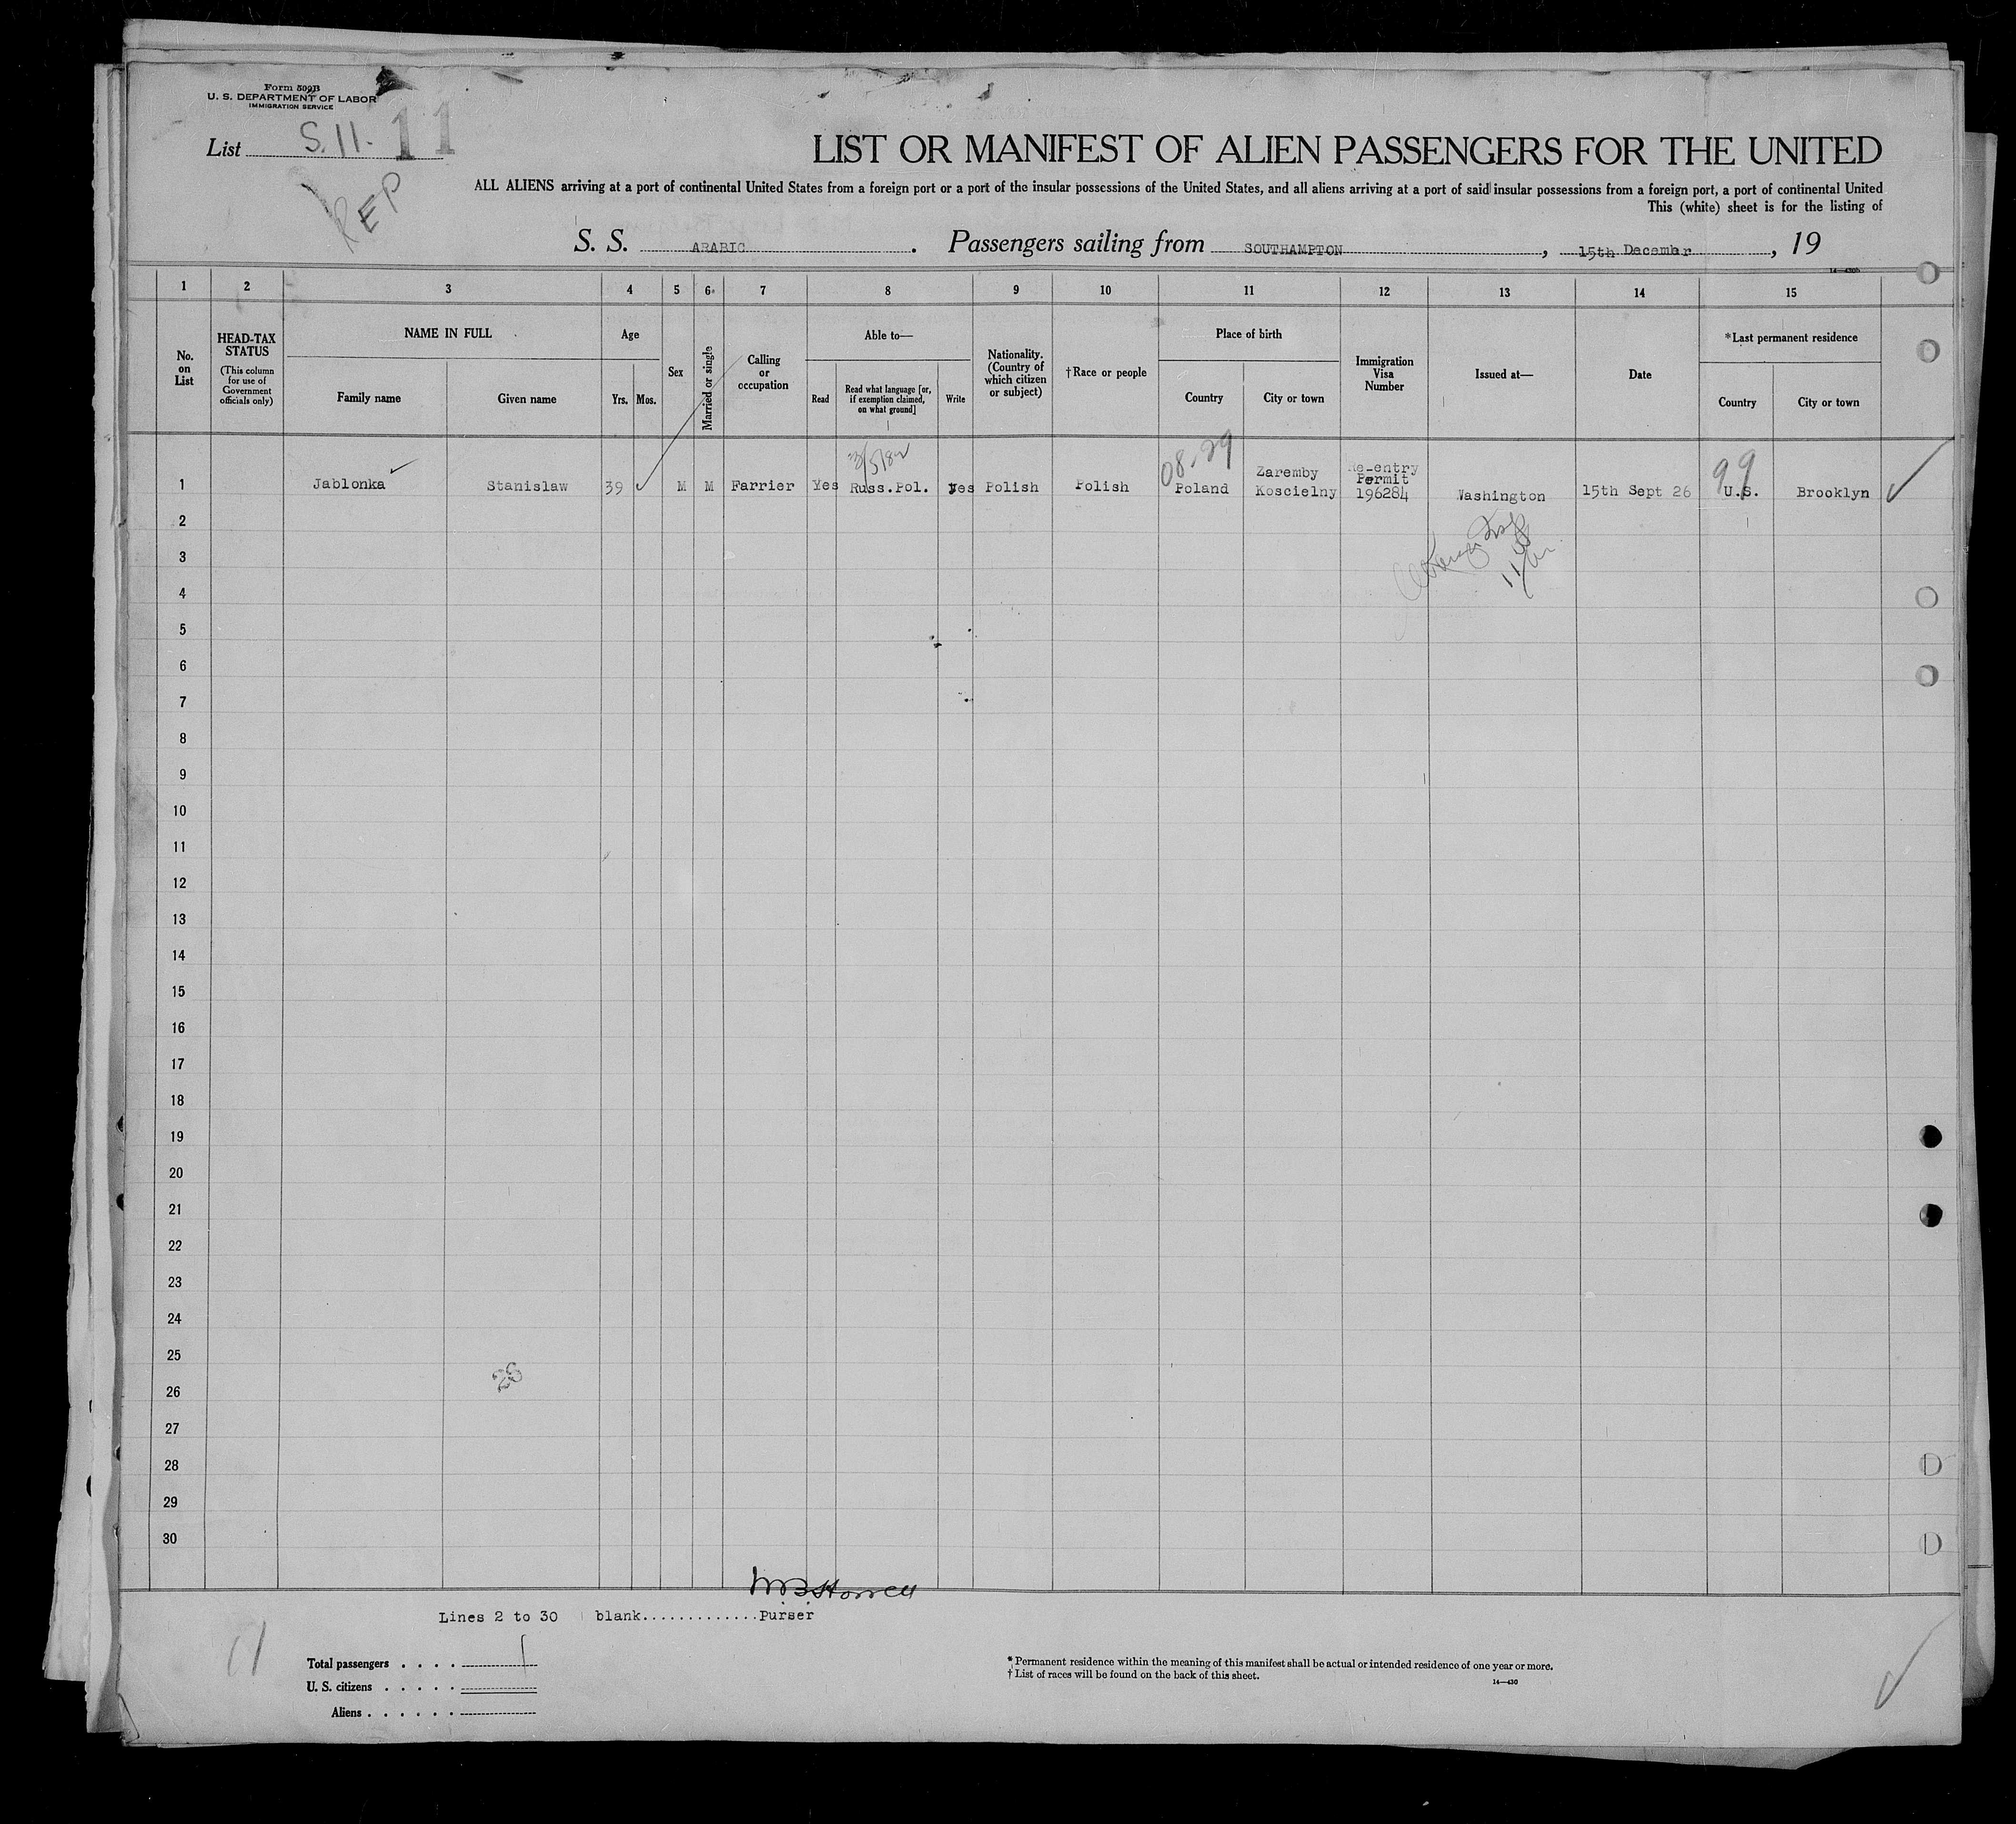 Form 500B
U. S. DEPARTMENT OF LABOR
IMMIGRATION SERVICE
List S.11. 11
REP
LIST OR MANIFEST OF ALIEN PASSENGERS FOR THE UNITED
ALL ALIENS arriving at a port of continental United States from a foreign port or a port of the insular possessions of the United States, and all aliens arriving at a port of said insular possessions from a foreign port, a port of continental United
This (white) sheet is for the listing of
S. S. ARABIC. Passengers sailing from SOUTHAMPTON, 15th December, 19
1 2 3 4 5 6 7 8 9 10 11 12 13 14 15
No. on List
HEAD-TAX STATUS
(This column for use of Government officials only)
NAME IN FULL
Family name
Given name
Age
Yrs.
Mos.
Sex
Married or single
Calling or occupation
Able to—
Read
Read what language [or, if exemption claimed, on what ground]
Write
Nationality. (Country of which citizen or subject)
†Race or people
Place of birth
Country
City or town
Immigration Visa Number
Issued at—
Date
*Last permanent residence
Country
City or town
08-29
99
1 Jablonka Stanislaw 39 M M Farrier Yes Russ.Pol. yes Polish Polish Poland Zaremby Koscielny Re-entry Permit 196284 Washington 15th Sept 26 U.S. Brooklyn
2
3
4
5
6
7
8
9
10
11
12
13
14
15
16
17
18
19
20
21
22
23
24
25
26
27
28
29
30
Lines 2 to 30 blank.............Purser
11
Total passengers . . . . 1
U. S. citizens . . . . .
Aliens . . . . . .
* Permanent residence within the meaning of this manifest shall be actual or intended residence of one year or more.
† List of races will be found on the back of this sheet.
14—430